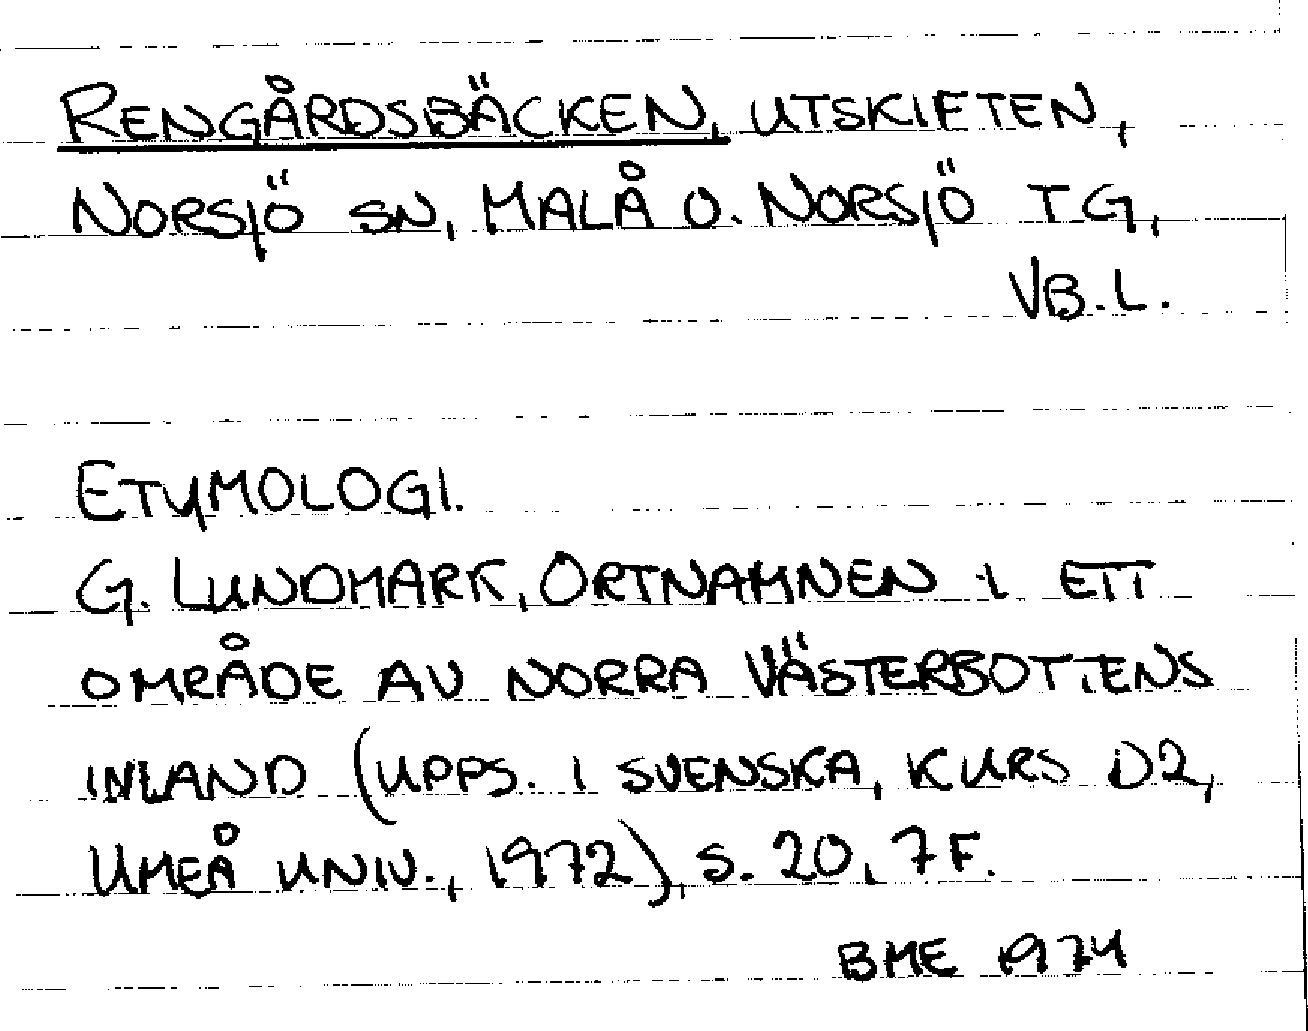 RENGÅRDSBÄCKEN, UTSKIFTEN,
NORSJÖ SN, MALÅ O. NORSJÖ TG,
VB.L.
ETYMOLOGI.
G. LUNDMARK, ORTNAMNEN I ETT
OMRÅDE AV NORRA VÄSTERBOTTENS
INLAND (UPPS. I SVENSKA, KURS D2,
UMEÅ UNIV., 1972), S. 20, 7 F.
BME 1974